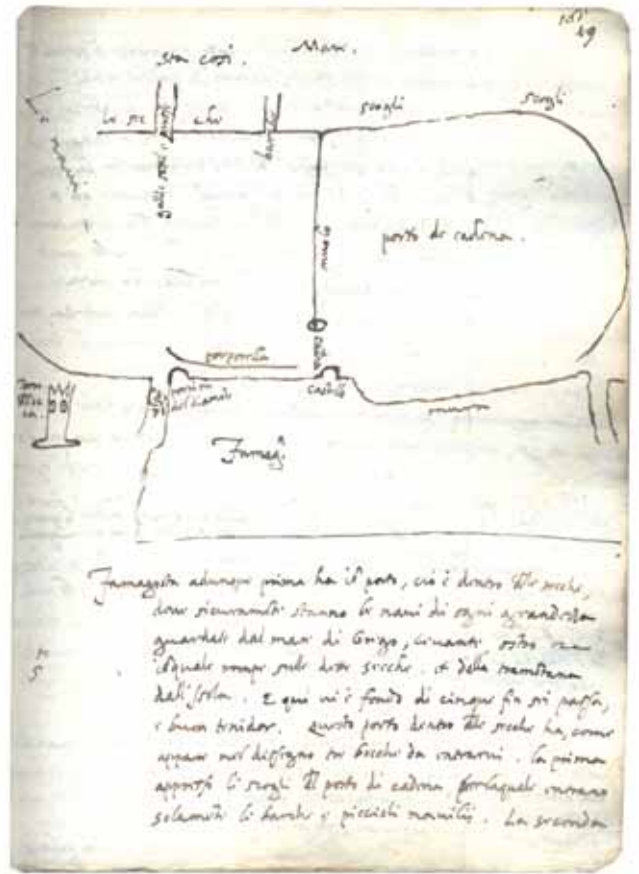 161
49
sta così.
Mare.
le sec che
scogli
scogli
barche
galie
navi
molo
porto de cadena.
cadena
porporella
castello
turion
del diamante
muron
Famag.
Famagosta adunque prima ha il porto, ciò è dentro delle secche,
dove sicuramente stanno le navi di ogni grandezza
guardate dal mar di Grego, Levante, ostro
il quale rompe sulle dette secche. et dalla tramontana
dall'isola. E qui vi è fondo di cinque fin sei passa,
e buon tenidor. questo porto dentro delle secche ha, come
appare nel dissegno tre bocche da intrarvi. la prima
appresso li scogli del porto di cadena per laquale intrano
solamente le barche e piccioli navilij. La seconda